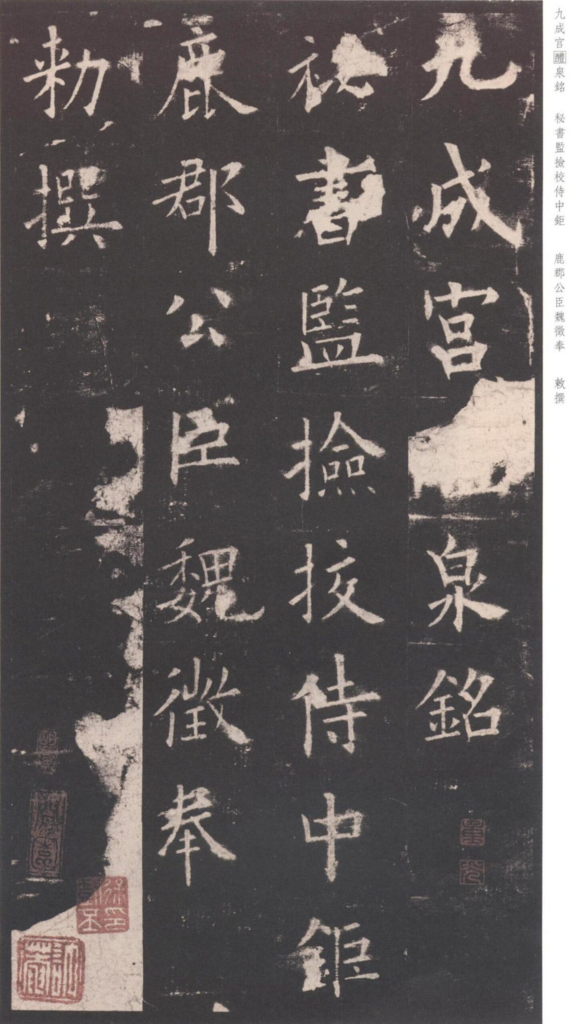 九成宮醴泉銘 秘書監撿校侍中鉅 鹿郡公臣魏徵奉 敕撰
九成宮泉銘
祕書監撿挍侍中鉅
鹿郡公臣魏徵奉
勑撰